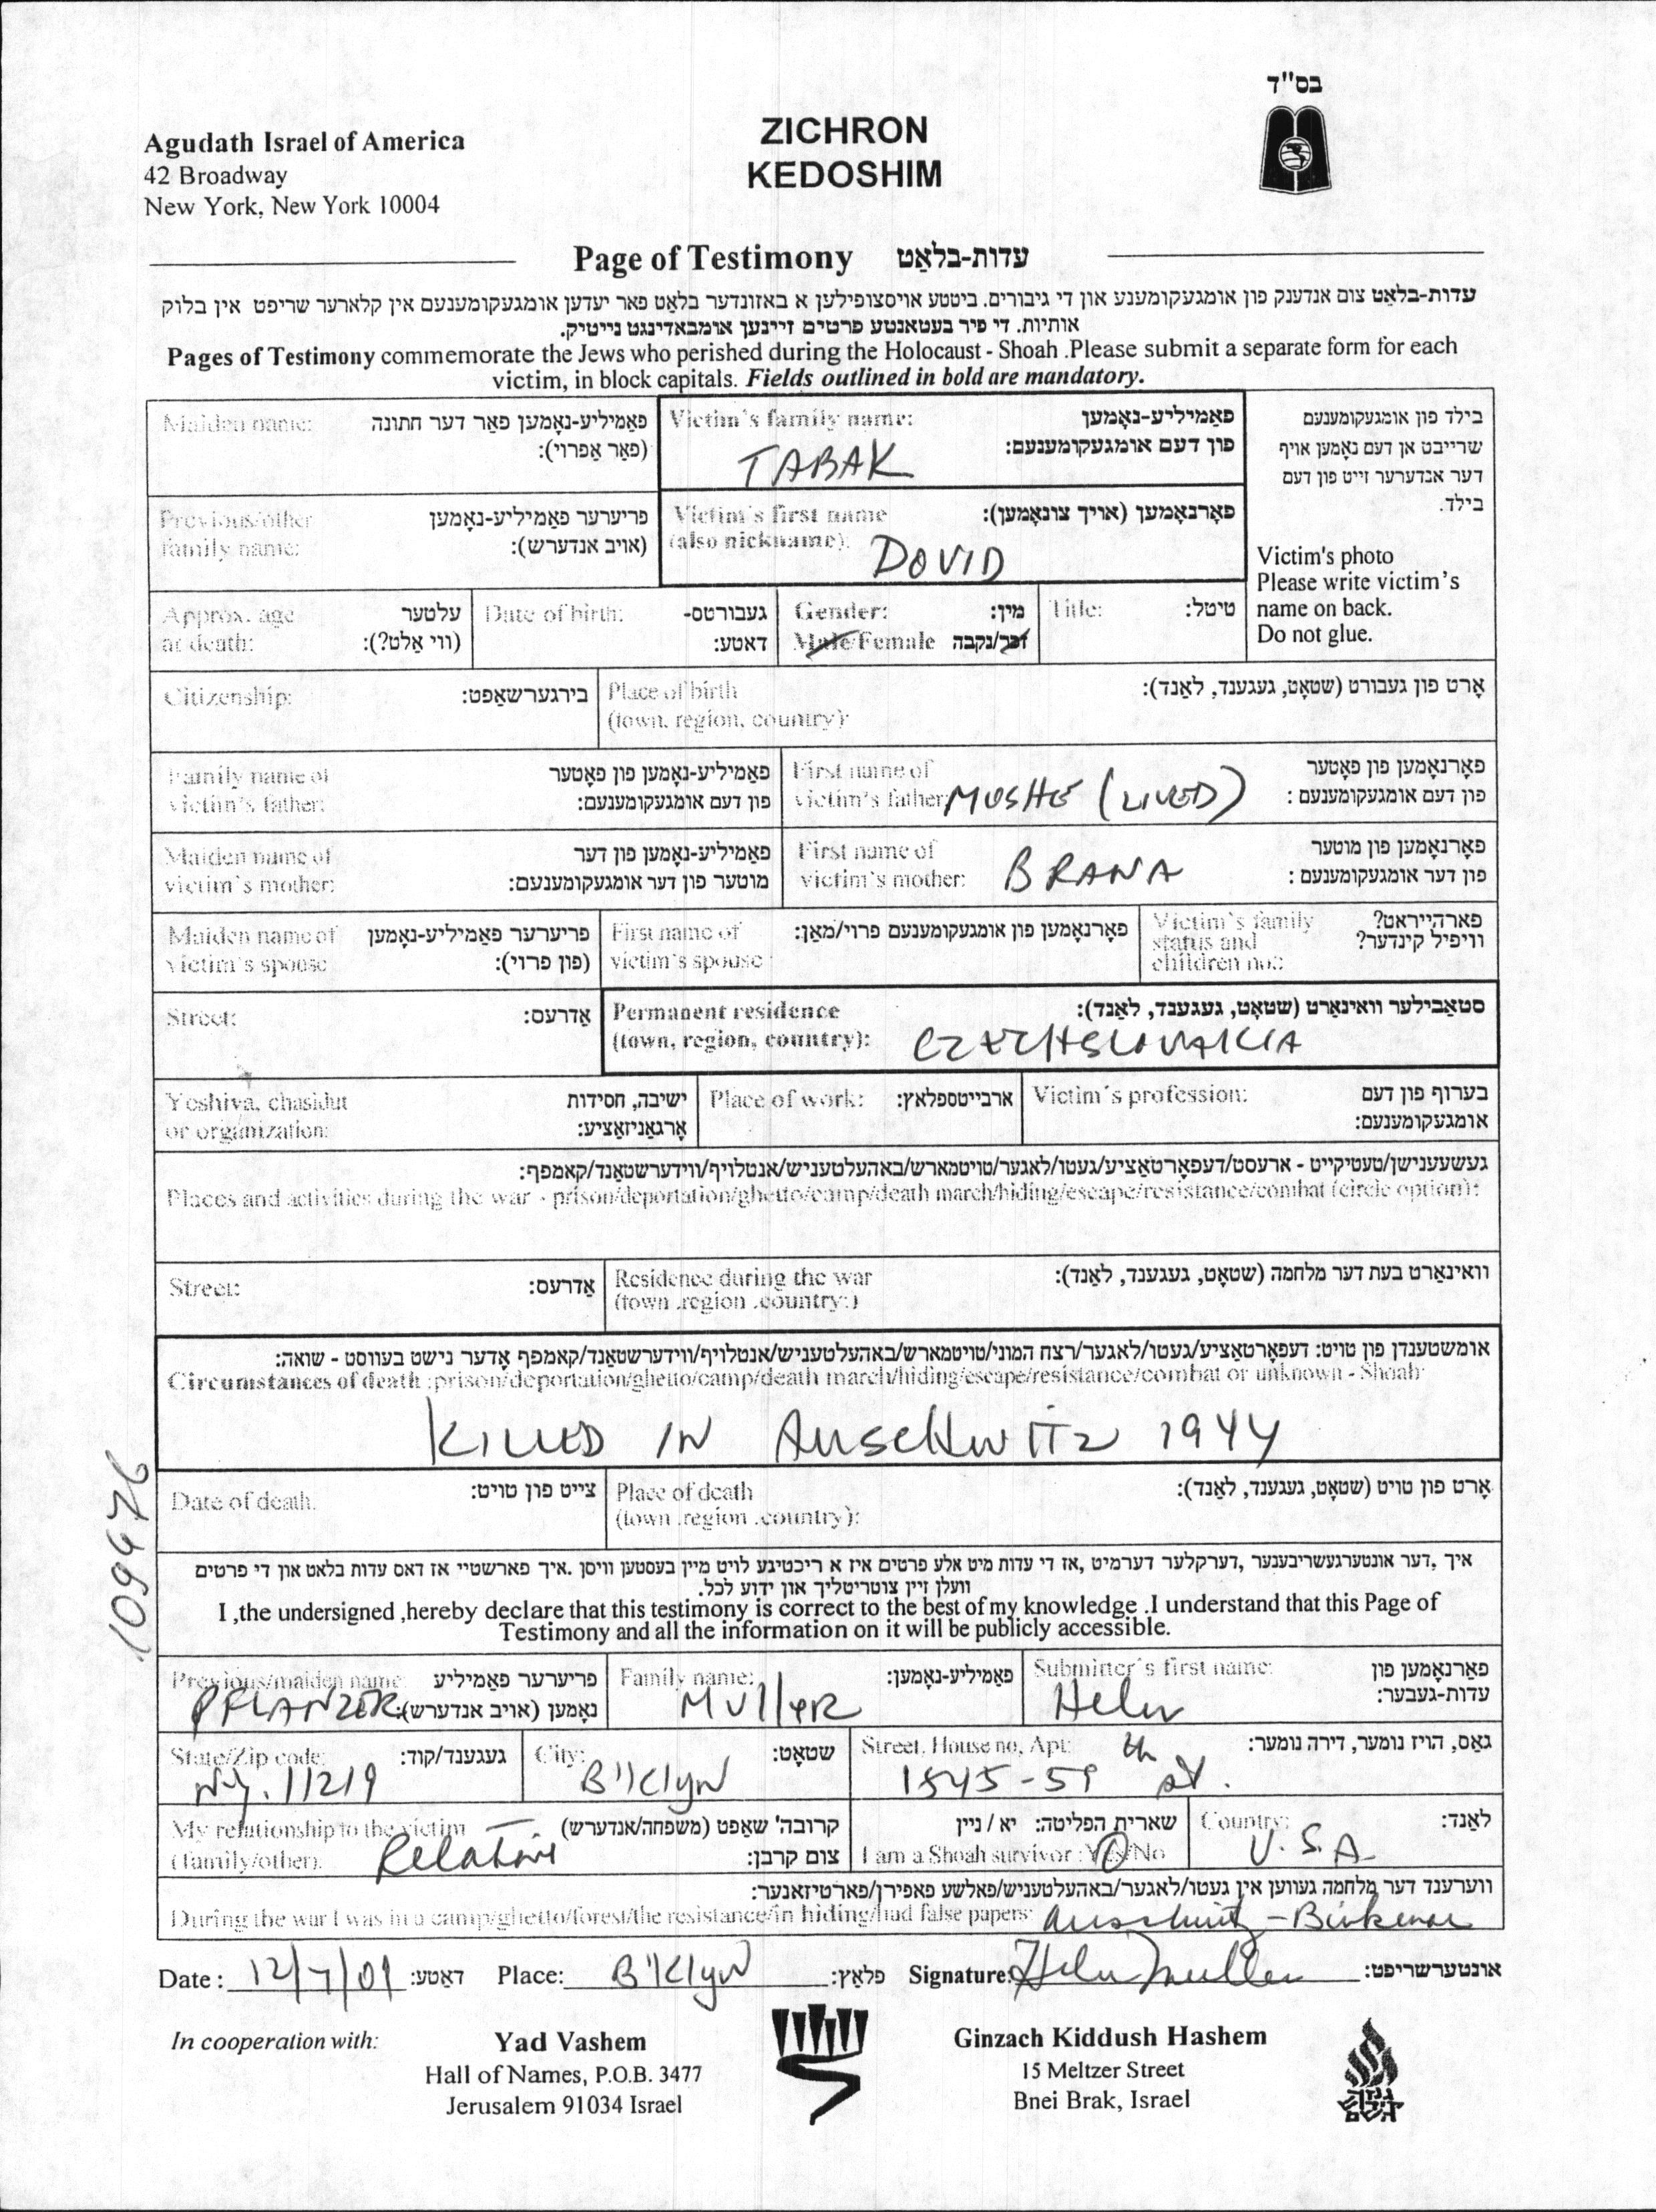 בס"ד
Agudath Israel of America
42 Broadway
New York, New York 10004
ZICHRON
KEDOSHIM
Page of Testimony עדות-בלאַט
עדות-בלאַט צום אנדענק פון אומגעקומענע און די גיבורים. ביטטע אויסצופילען א באזונדער בלאַט פאר יעדען אומגעקומענעם אין קלארער שריפט אין בלוק
אותיות. די פיר בעטאנטע פרטים זיינען אומבאדינגט נייטיק.
Pages of Testimony commemorate the Jews who perished during the Holocaust - Shoah .Please submit a separate form for each
victim, in block capitals. Fields outlined in bold are mandatory.
Maiden name: פאַמיליע-נאָמען פאַר דער חתונה
(פאַר אַפרוי):
Victim's family name: פאַמיליע-נאָמען
פון דעם אומגעקומענעם:
TABAK
בילד פון אומגעקומענעם
שרייבט אן דעם נאָמען אויף
דער אנדערער זייט פון דעם
בילד.
Victim's photo
Please write victim's
name on back.
Do not glue.
Previous/other פריערער פאַמיליע-נאָמען
family name: (אויב אנדערש):
Victim's first name פאָרנאָמען (אויך צונאָמען):
(also nickname): DOVID
Approx. age עלטער
at death: (ווי אַלט?):
Date of birth: געבורטס-
דאטע:
Gender: מין:
Male/Female זכר/נקבה
Title: טיטל:
Citizenship: בירגערשאַפט:
Place of birth אָרט פון געבורט (שטאָט, געגענד, לאַנד):
(town, region, country):
Family name of פאַמיליע-נאָמען פון פאָטער
victim's father: פון דעם אומגעקומענעם:
First name of פאָרנאָמען פון פאָטער
victim's father: MOSHE (LIVED) פון דעם אומגעקומענעם :
Maiden name of פאַמיליע-נאָמען פון דער
victim's mother: מוטער פון דער אומגעקומענעם:
First name of פאָרנאָמען פון מוטער
victim's mother: BRANA פון דער אומגעקומענעם :
Maiden name of פריערער פאַמיליע-נאָמען
victim's spouse (פון פרוי):
First name of פאָרנאָמען פון אומגעקומענעם פרוי/מאַן:
victim's spouse :
Victim's family פארהייראט?
status and וויפיל קינדער?
children no.:
Street: אַדרעס:
Permanent residence סטאַבילער וואינאָרט (שטאָט, געגענד, לאַנד):
(town, region, country): CZECHSLOVAKIA
Yeshiva, chasidut ישיבה, חסידות
or organization: אָרגאַניזאַציע:
Place of work: ארבייטספלאץ:
Victim's profession: בערוף פון דעם
אומגעקומענעם:
געשעענישן/טעטיקייט - ארעסט/דעפאָרטאַציע/געטו/לאגער/טויטמארש/באהעלטעניש/אנטלויף/ווידערשטאַנד/קאמפף:
Places and activities during the war - prison/deportation/ghetto/camp/death march/hiding/escape/resistance/combat (circle option):
Street: אַדרעס:
Residence during the war וואינאָרט בעת דער מלחמה (שטאָט, געגענד, לאַנד):
(town .region .country:)
אומשטענדן פון טויט: דעפאָרטאַציע/געטו/לאגער/רצח המוני/טויטמארש/באהעלטעניש/אנטלויף/ווידערשטאַנד/קאמפף אָדער נישט בעווסט - שואה:
Circumstances of death :prison/deportation/ghetto/camp/death march/hiding/escape/resistance/combat or unknown - Shoah:
KILLED IN AUSCHWITZ 1944
Date of death: צייט פון טויט:
Place of death אָרט פון טויט (שטאָט, געגענד, לאַנד):
(town .region .country):
109476
איך ,דער אונטערגעשריבענער ,דערקלער דערמיט ,אז די עדות מיט אלע פרטים איז א ריכטיגע לויט מיין בעסטען וויסן .איך פארשטיי אז דאס עדות בלאט און די פרטים
וועלן זיין צוטריטליך און ידוע לכל.
I ,the undersigned ,hereby declare that this testimony is correct to the best of my knowledge .I understand that this Page of
Testimony and all the information on it will be publicly accessible.
Previous/maiden name: פריערער פאַמיליע
PFLANZER נאָמען (אויב אנדערש):
Family name: פאַמיליע-נאָמען:
MUllER
Submitter's first name: פאַרנאָמען פון
עדות-געבער:
Helen
State/Zip code: געגענד/קוד:
N.Y. 11219
City: שטאָט:
B'klyn
Street, House no, Apt: גאַס, הויז נומער, דירה נומער:
1545-59 th st.
My relationship to the victim קרובה' שאַפט (משפחה/אנדערש)
(family/other): Relative צום קרבן:
שארית הפליטה: יא / ניין
I am a Shoah survivor : Yes/No
Country: לאַנד:
U.S.A.
ווערענד דער מלחמה געווען אין געטו/לאגער/באהעלטעניש/פאלשע פאפירן/פארטיזאנער:
During the war I was in a camp/ghetto/forest/the resistance/in hiding/had false papers: Auschwitz - Birkenau
Date : 12/7/01 דאטע: Place: B'klyn פלאַץ: Signature: Helen Muller אונטערשריפט:
In cooperation with:
Yad Vashem
Hall of Names, P.O.B. 3477
Jerusalem 91034 Israel
Ginzach Kiddush Hashem
15 Meltzer Street
Bnei Brak, Israel
גנזך
קידוש
השם